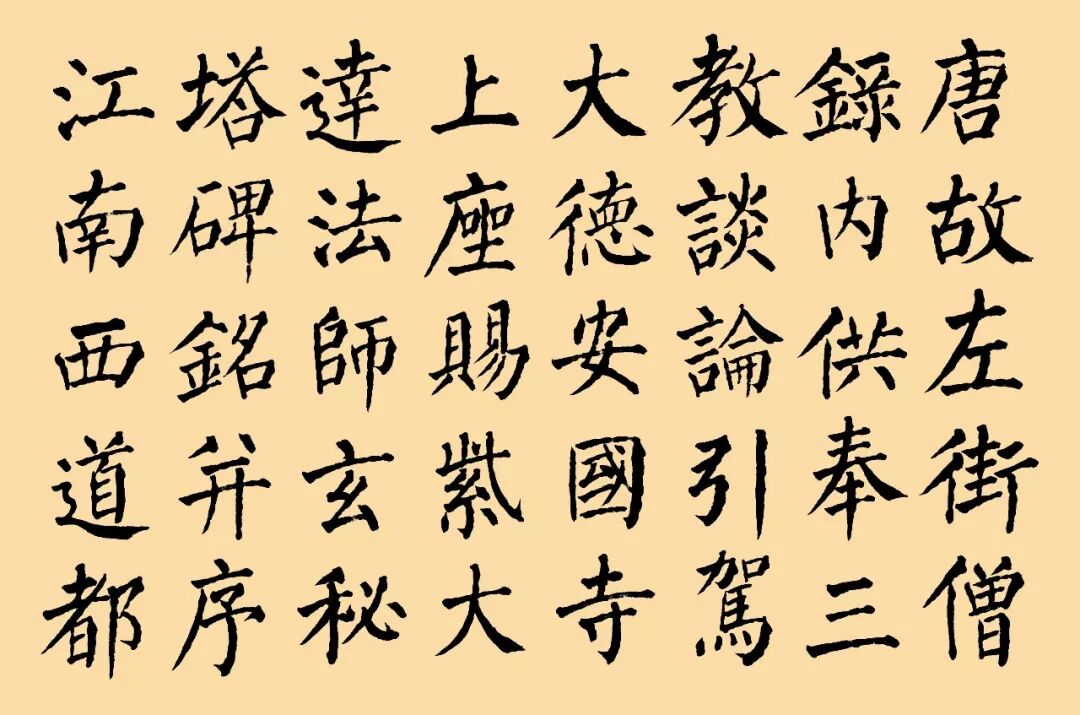 唐故左街僧
錄内供奉三
教談論引駕
大德安國寺
上座賜紫大
達法師玄秘
塔碑銘并序
江南西道都